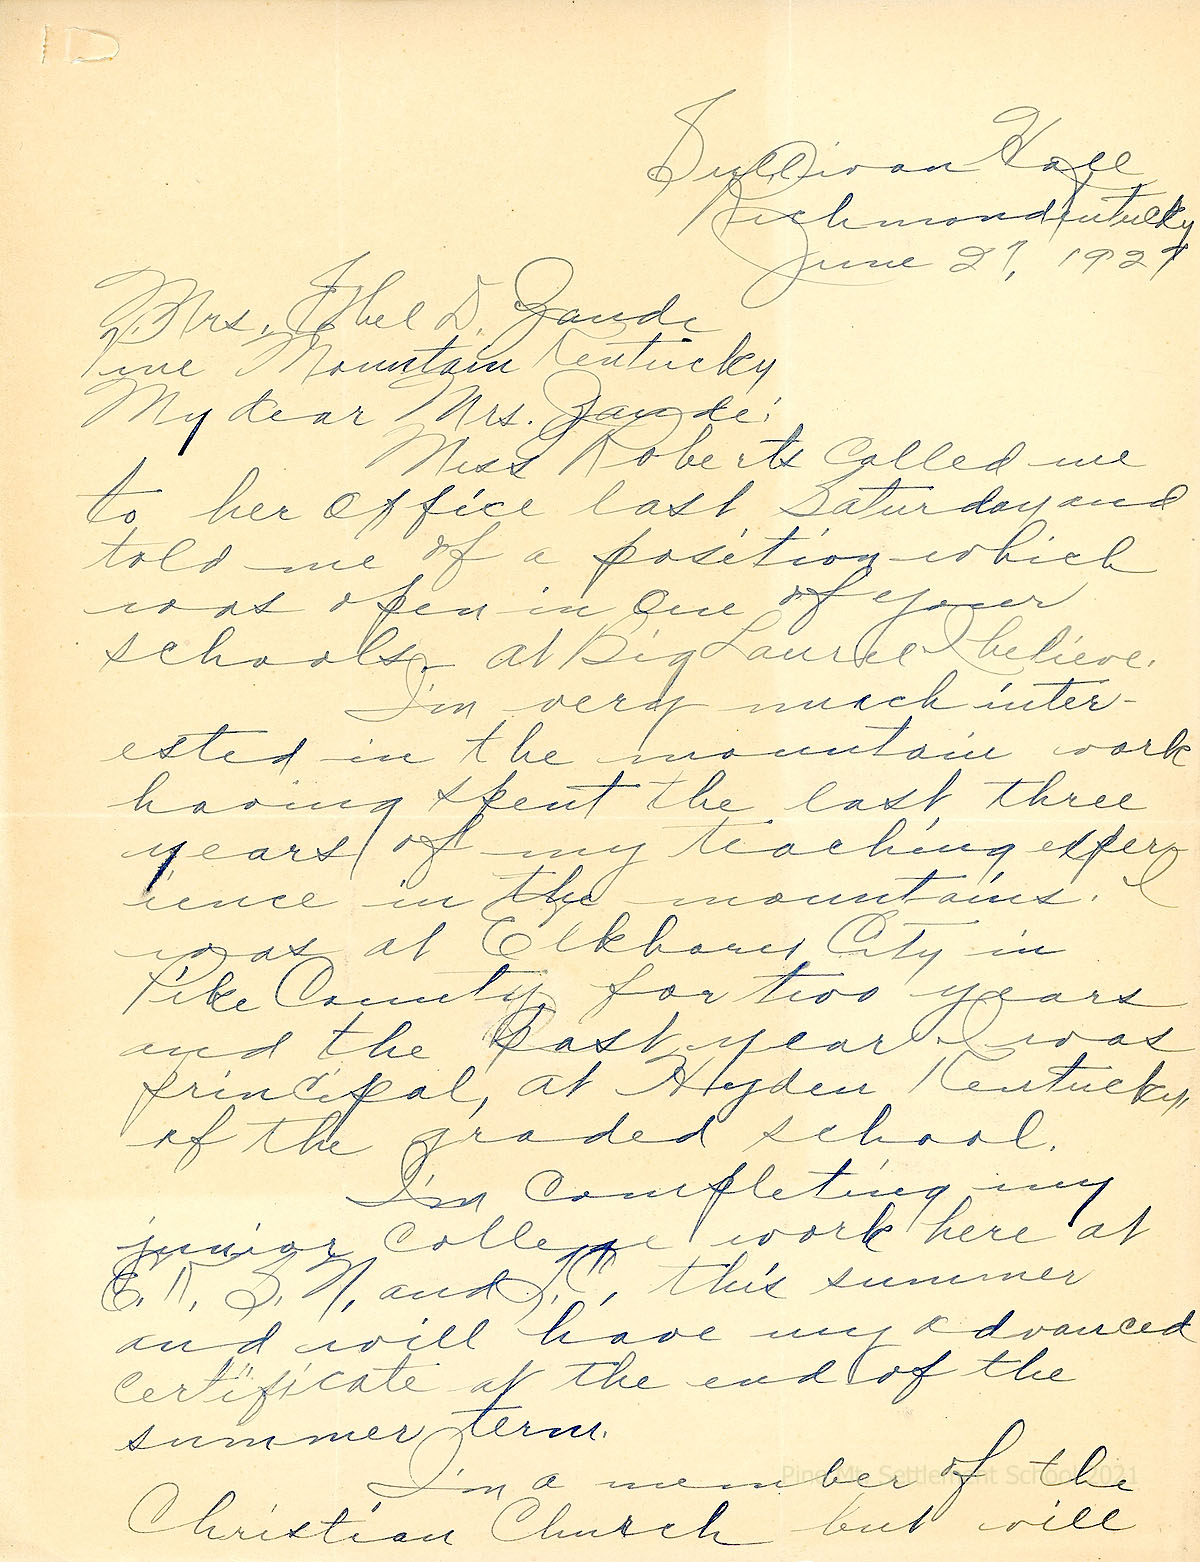 Sullivan Hall
Richmond Kentucky
June 27, 1927
Mrs. Ethel D. Zande
Pine Mountain Kentucky
My dear Mrs. Zande:
Miss Roberts called me
to her office last Saturday and
told me of a position which
was open in one of your
schools, at Big Laurel I believe.
I'm very much inter-
ested in the mountain work
having spent the last three
years of my teaching exper-
ience in the mountains. I
was at Elkhorn City in
Pike County for two years
and the past year I was
principal, at Hyden Kentucky,
of the graded school.
I'm completing my
junior college work here at
E. K. S. N. and T. C., this summer
and will have my advanced
certificate at the end of the
summer term.
I'm a member of the
Christian Church but will
Pine Mt. Settlement School 2021